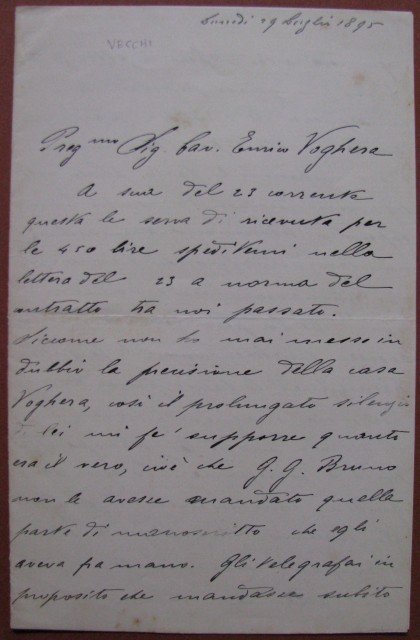 Lunedì 29 Luglio 1895
VECCHI
Preg.mo Sig. Cav. Enrico Voghera
A sua del 23 corrente
questa le serva di ricevuta per
le 450 lire speditemi nella
lettera del 23 a norma del
contratto tra noi passato.
Siccome non ho mai messo in
dubbio la precisione della casa
Voghera, così il prolungato silenzio
di lei mi fe' supporre quanto
era il vero, cioè che G. G. Bruno
non le avesse mandato quella
parte di manoscritto che egli
aveva fra mano. Gli telegrafai in
proposito che mandasse subito